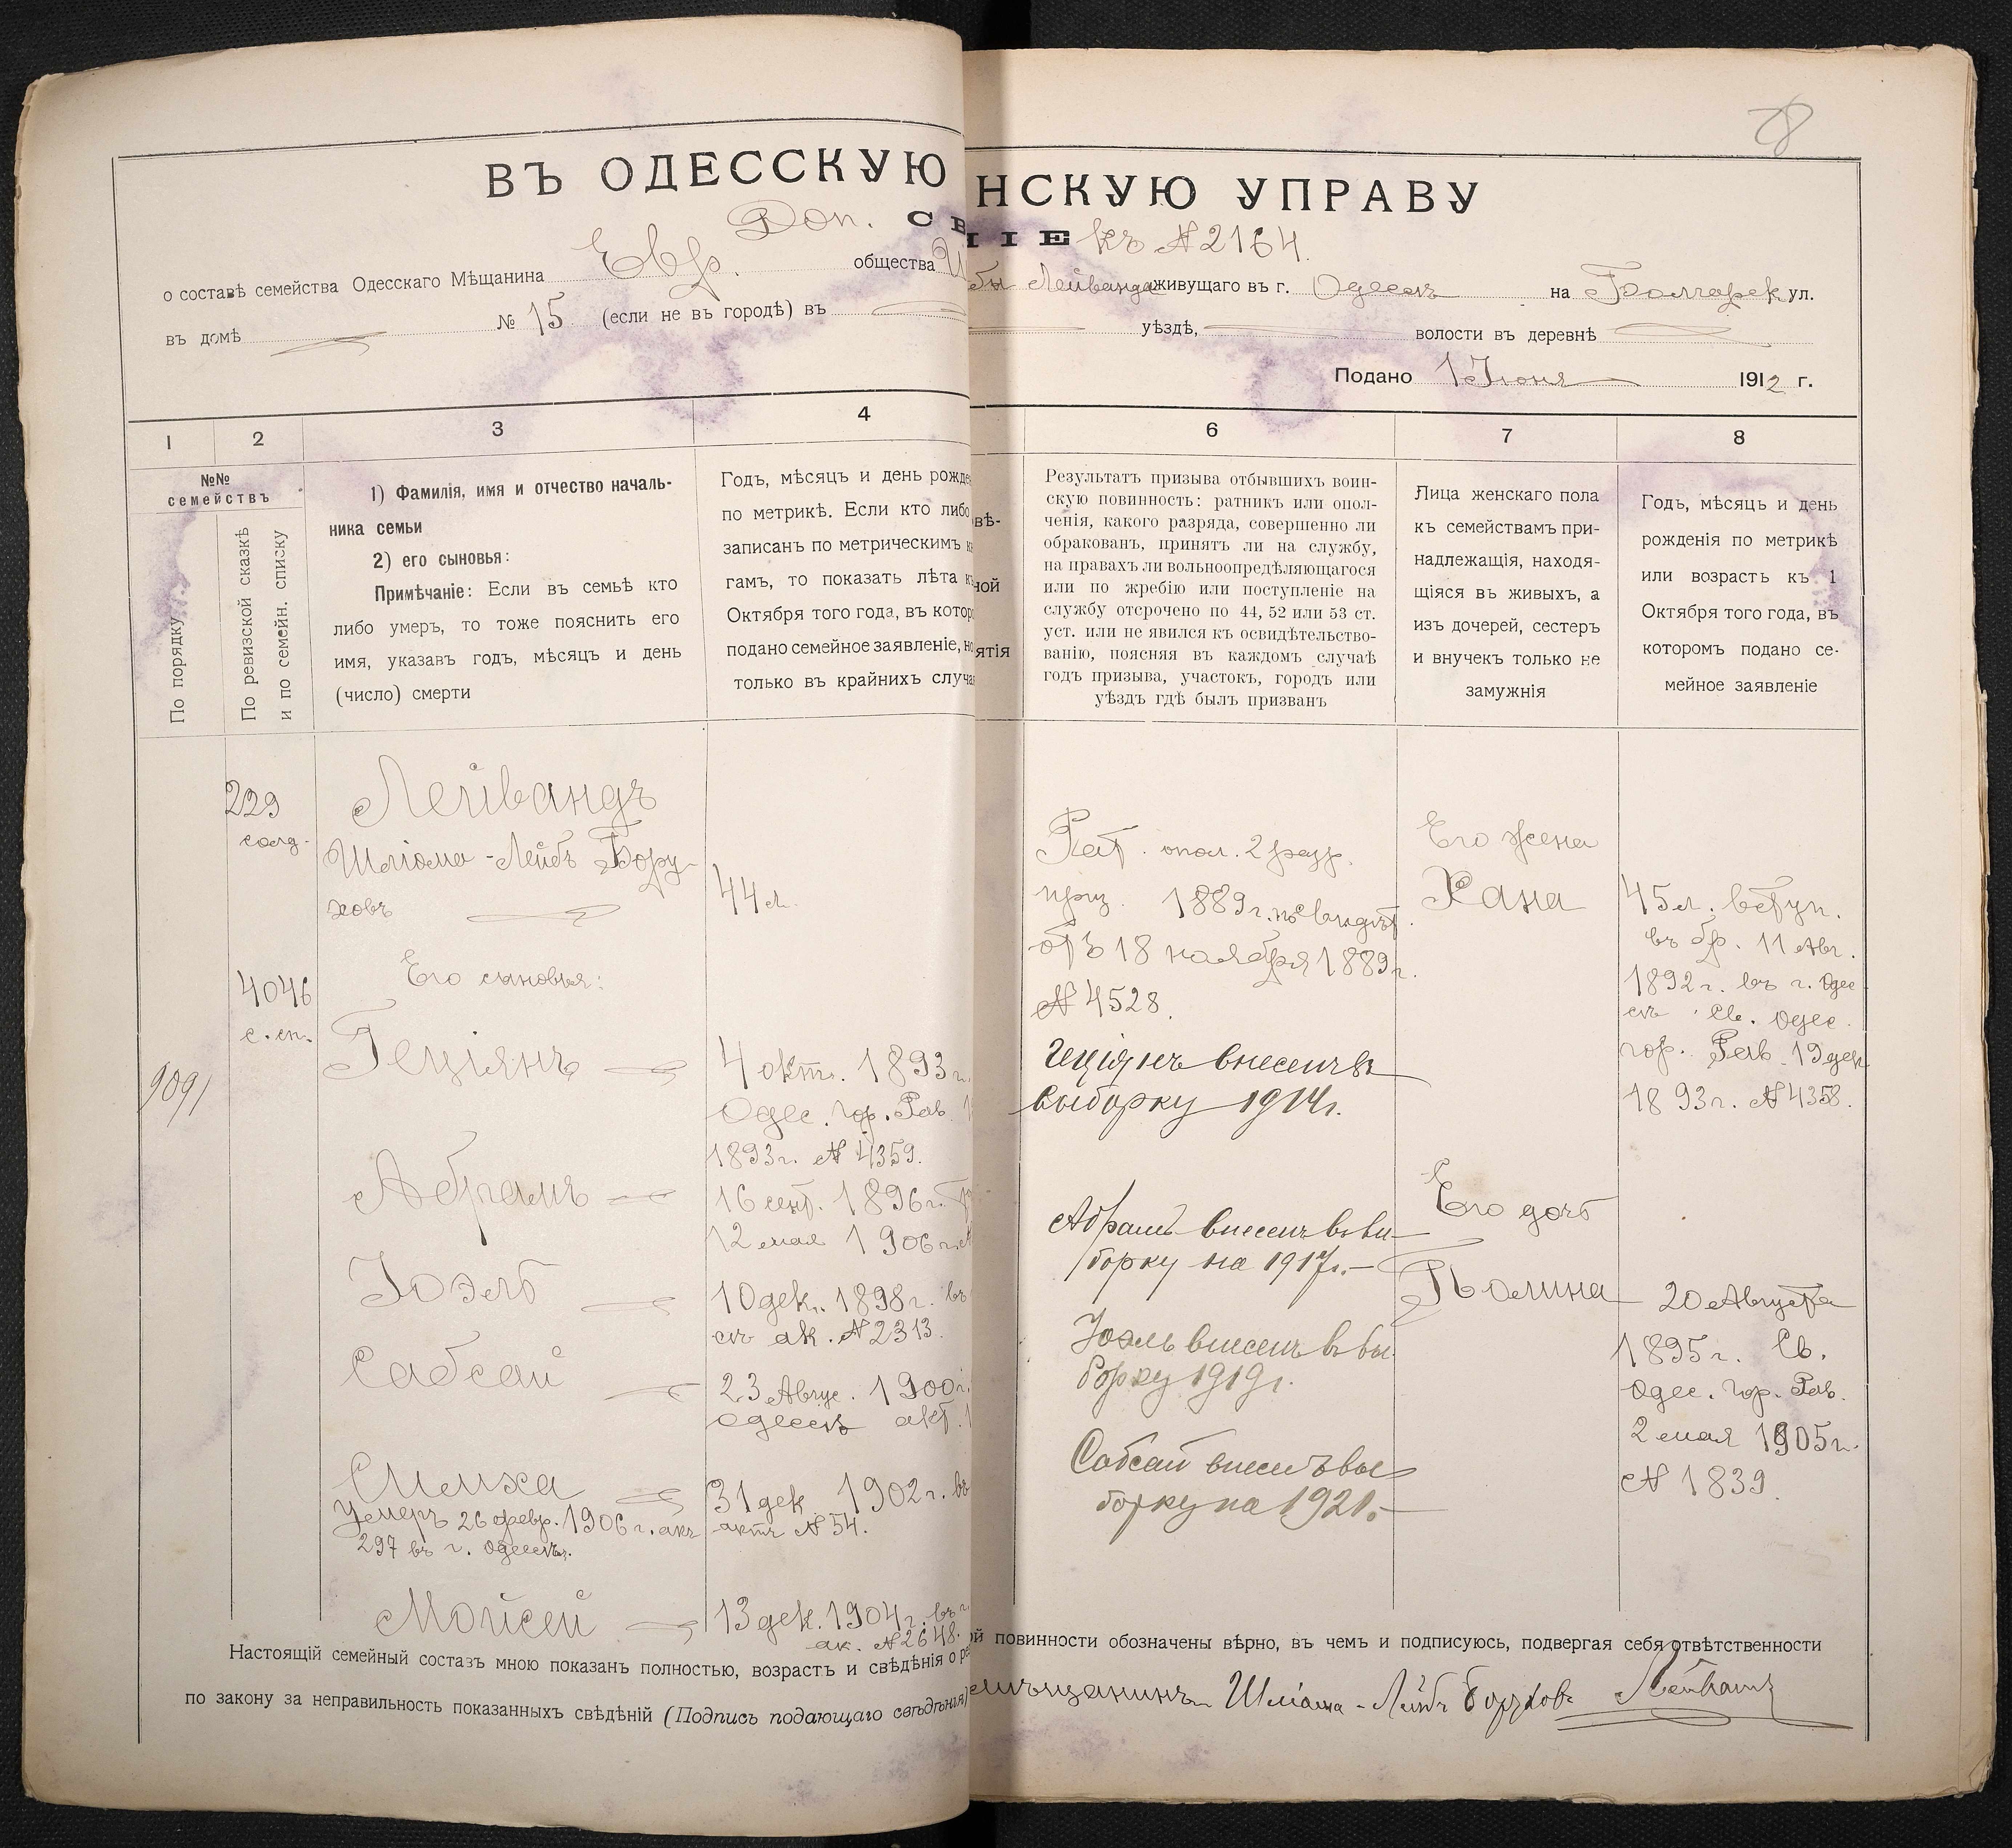 78
ВЪ ОДЕССКУЮ
НСКУЮ УПРАВУ
Доп. СВ
НІЕ къ №2164.
о составѣ семейства Одесскаго Мѣщанина Евр. общества
Лейванда живущаго въ г. Одессѣ на Болгарск ул.
въ домѣ № 15 (если не въ городѣ) въ
уѣздѣ, волости въ деревнѣ
Подано 1 Іюня 1912 г.
1
2
3
4
№№
семействъ
По порядку
По ревизской сказкѣ
и по семейн. списку
1) Фамилія, имя и отчество началь-
ника семьи
2) его сыновья:
Примѣчаніе: Если въ семьѣ кто
либо умеръ, то тоже пояснить его
имя, указавъ годъ, мѣсяцъ и день
(число) смерти
Годъ, мѣсяцъ и день рожде
по метрикѣ. Если кто либо
записанъ по метрическимъ к
гамъ, то показать лѣта к
Октября того года, въ котор
подано семейное заявленіе, но
только въ крайнихъ случа
229
солд.
Лейвандъ
Шліома-Лейбъ Бору-
ховъ
44 л.
4046
с. сп.
Его сыновья:
9091
Гецiянъ
4 окт. 1893 г.
Одес. гор. Рав.
1893 г. № 4359.
Абрамъ
16 сент. 1896 г.
12 мая 1906 г.
Іоэль
10 дек. 1898 г. въ
сѣ ак. №2313.
Сабсай
23 Авгус. 1900 г.
Одессѣ акт.
Симха
31 дек. 1902 г. въ
умеръ 26 февр. 1906 г. акт
актъ № 54.
297 въ г. Одессѣ.
Мойсей
13 дек. 1904 г. въ г.
ак. №2648.
Настоящій семейный составъ мною показанъ полностью, возрастъ и свѣдѣнія о
по закону за неправильность показанныхъ свѣдѣній (Подпись подающаго свѣдѣнія)
6
7
8
вѣ-
ной
ятія
Результатъ призыва отбывшихъ воин-
скую повинность: ратникъ или опол-
ченія, какого разряда, совершенно ли
обракованъ, принятъ ли на службу,
на правахъ ли вольноопредѣляющагося
или по жребію или поступленіе на
службу отсрочено по 44, 52 или 53 ст.
уст. или не явился къ освидѣтельство-
ванію, поясняя въ каждомъ случаѣ
годъ призыва, участокъ, городъ или
уѣздъ гдѣ былъ призванъ
Лица женскаго пола
къ семействамъ при-
надлежащія, находя-
щіяся въ живыхъ, а
изъ дочерей, сестеръ
и внучекъ только не
замужнія
Годъ, мѣсяцъ и день
рожденія по метрикѣ
или возрастъ къ 1
Октября того года, въ
которомъ подано се-
мейное заявленіе
Рат. опол. 2 разр.
приз. 1889 г. по свидѣт.
отъ 18 ноября 1889 г.
№ 4528.
Гецiянъ внесенъ въ
выборку 1914 г.
Абрамъ внесенъ въ вы-
борку на 1917 г.
Іоэль внесенъ въ вы-
борку 1919 г.
Сабсай внесенъ въ вы-
борку на 1921.
Его жена
Хана
45 л. вступ.
въ бр. 11 Авг.
1892 г. въ г. Одес-
сѣ Св. Одес.
гор. Рав. 19 дек
1893 г. № 4358.
Его дочь
Полина
20 Августа
1895 г. Св.
Одес. гор. Рав.
2 мая 1905 г.
№ 1839.
ой повинности обозначены вѣрно, въ чемъ и подписуюсь, подвергая себя отвѣтственности
мѣщанинъ Шліома-Лейбъ Боруховъ Лейвандъ